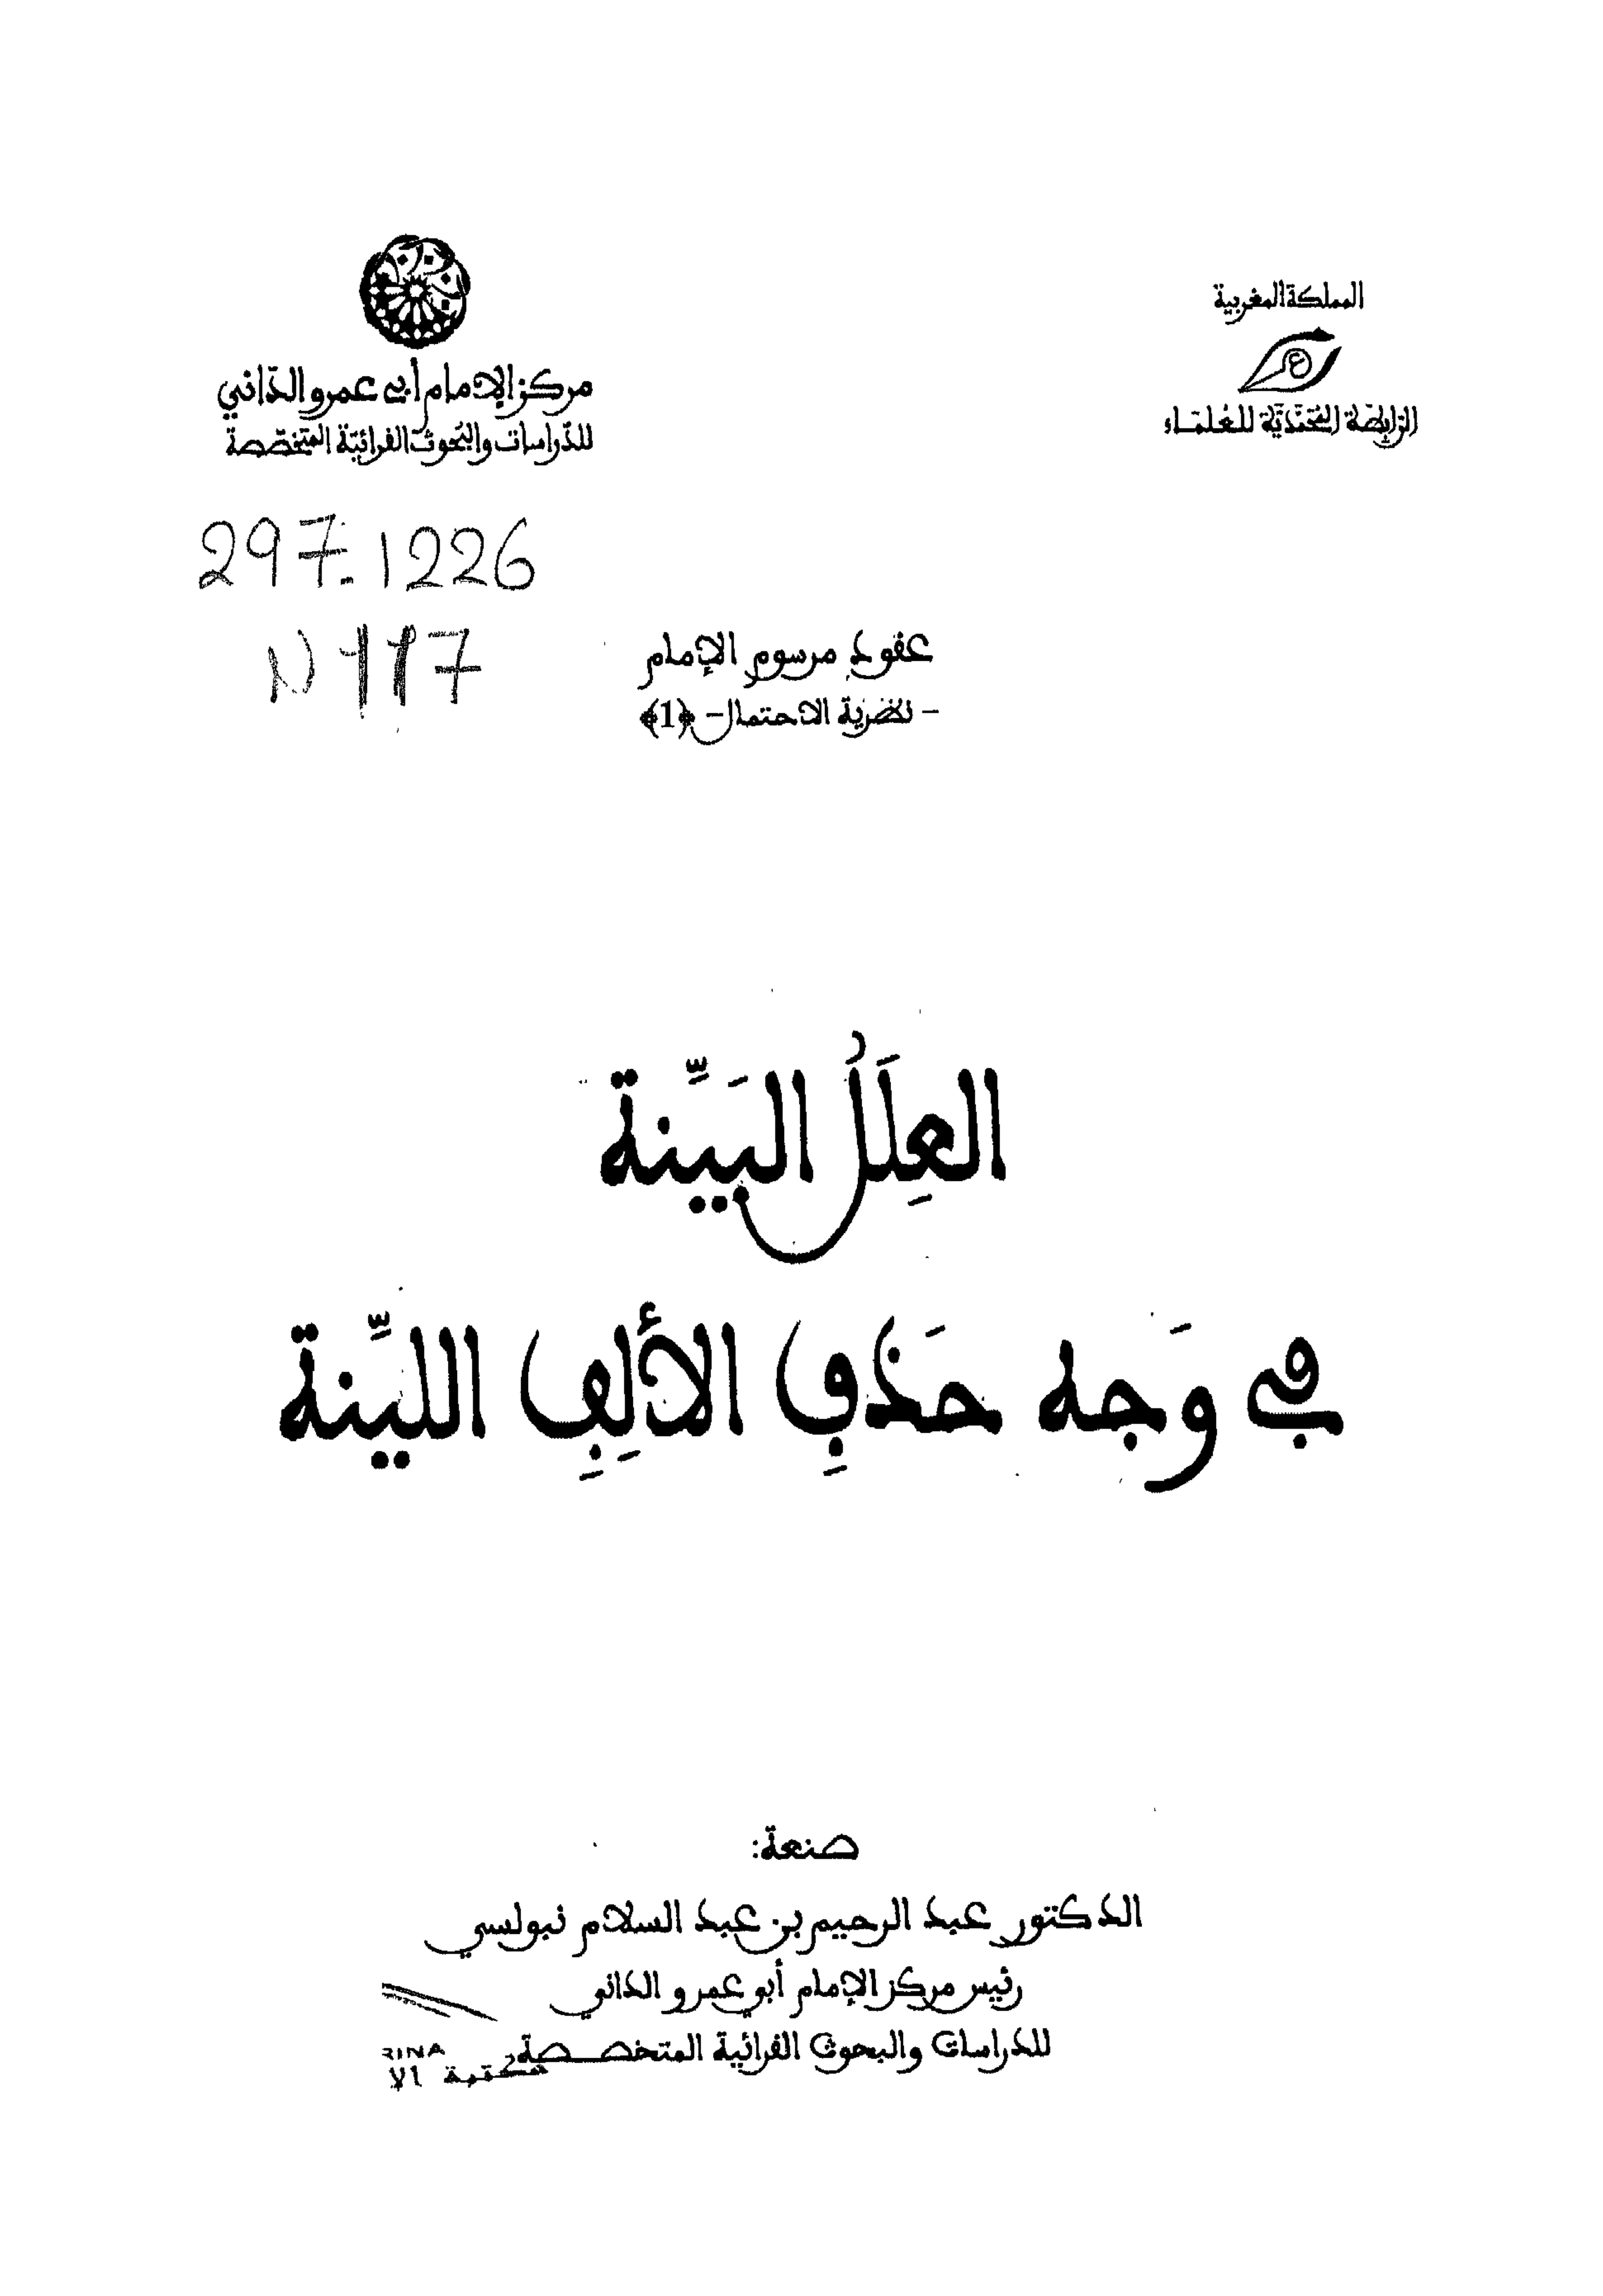 المملكة المغربية
الرابطة المحمدية للعلماء
مركز الإمام أبي عمرو الدّاني
للدّراسات والبحوث القرائيّة المتخصّصة
297.1226
N117
عقود مرسوم الإمام
- نظرية الاحتمال- ﴿1﴾
العِلَلُ البَيِّنة
في وَجه حَذفِ الألِفِ الليِّنة
صنعة:
الدكتور عبد الرحيم بن عبد السلام نبولسي
رئيس مركز الإمام أبي عمرو الداني
للدراسات والبحوث القرائية المتخصصة
RINA
مكتبة الا